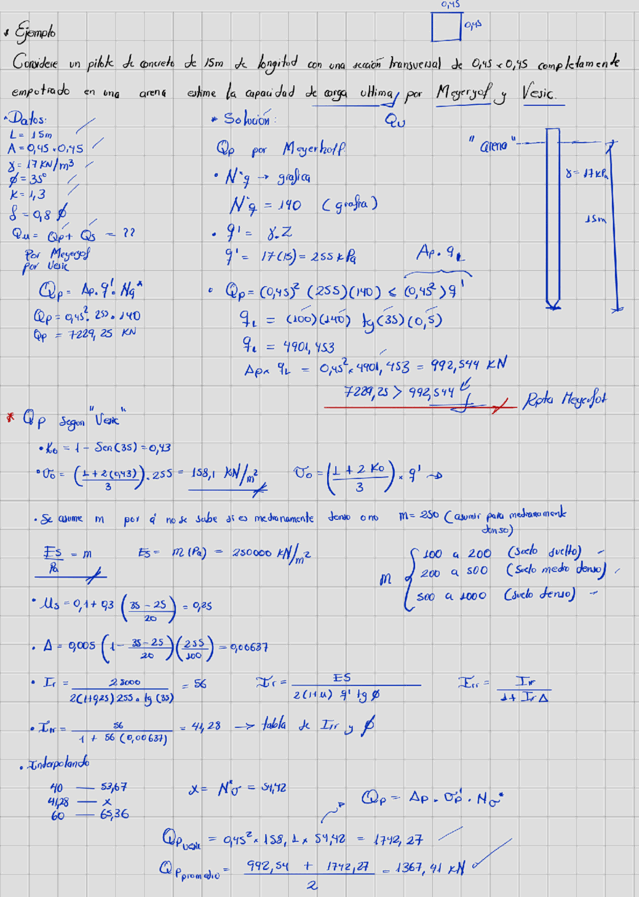 0,45
0,45
* Ejemplo
Considere un pilote de concreto de 15m de longitud con una sección transversal de 0,45 x 0,45 completamente
empotrado en una arena estime la capacidad de carga ultima por Meyergof y Vesic.
Qu
• Datos:
L = 15m
A = 0,45 . 0,45
γ = 17 KN/m³
ϕ = 35°
K = 1,3
δ = 0,8 ϕ
Qu = Qp + Qs = ??
Por Meyergof
por Vesic
Qp = Ap . q' . Nq*
Qp = 0,45² . 255 . 140
Qp = 7229,25 KN
* Solución:
Qp por Meyerhoff
• N*q → grafica
N*q = 140 (grafica)
• q' = γ . Z
q' = 17(15) = 255 kPa
Ap . qL
• Qp = (0,45)² (255)(140) ≤ (0,45²) q'
qL = (100)(140) tg(35)(0,5)
qL = 4901,453
Ap x qL = 0,45² x 4901,453 = 992,544 KN
7229,25 > 992,544
Rpta Meyerfof
"arena"
γ = 17 kPa
15m
* Qp segun "Vesic"
• Ko = 1 - Sen(35) = 0,43
• σo = ((1 + 2(0,43))/3) . 255 = 158,1 KN/m²
σo = ((1 + 2 Ko)/3) x q' →
• Se asume m por q' no se sabe si es medianamente denso o no m = 250 (asumir para medianamente
denso)
Es/Pa = m
Es = m(Pa) = 250000 KN/m²
m { 100 a 200 (suelo suelto)
200 a 500 (suelo medio denso)
500 a 1000 (suelo denso)
• Us = 0,1 + 0,3 ((35 - 25)/20) = 0,25
• Δ = 0,005 (1 - (35 - 25)/20)(255/100) = 0,00637
• Ir = 25000/(2(1+0,25) 255 . tg(35)) = 56
Ir = ES/(2(1+u) q' tg ϕ)
Irr = Ir/(1 + Ir Δ)
• Irr = 56/(1 + 56 (0,00637)) = 41,28 → tabla de Irr y ϕ
• Interpolando
40 — 53,67
41,28 — x
60 — 65,36
x = N*σ = 54,42
Qp = Ap . σp' . Nσ*
Qp vesic = 0,45² x 158,1 x 54,42 = 1742,27
Qp promedio = (992,54 + 1742,27)/2 = 1367,41 KN